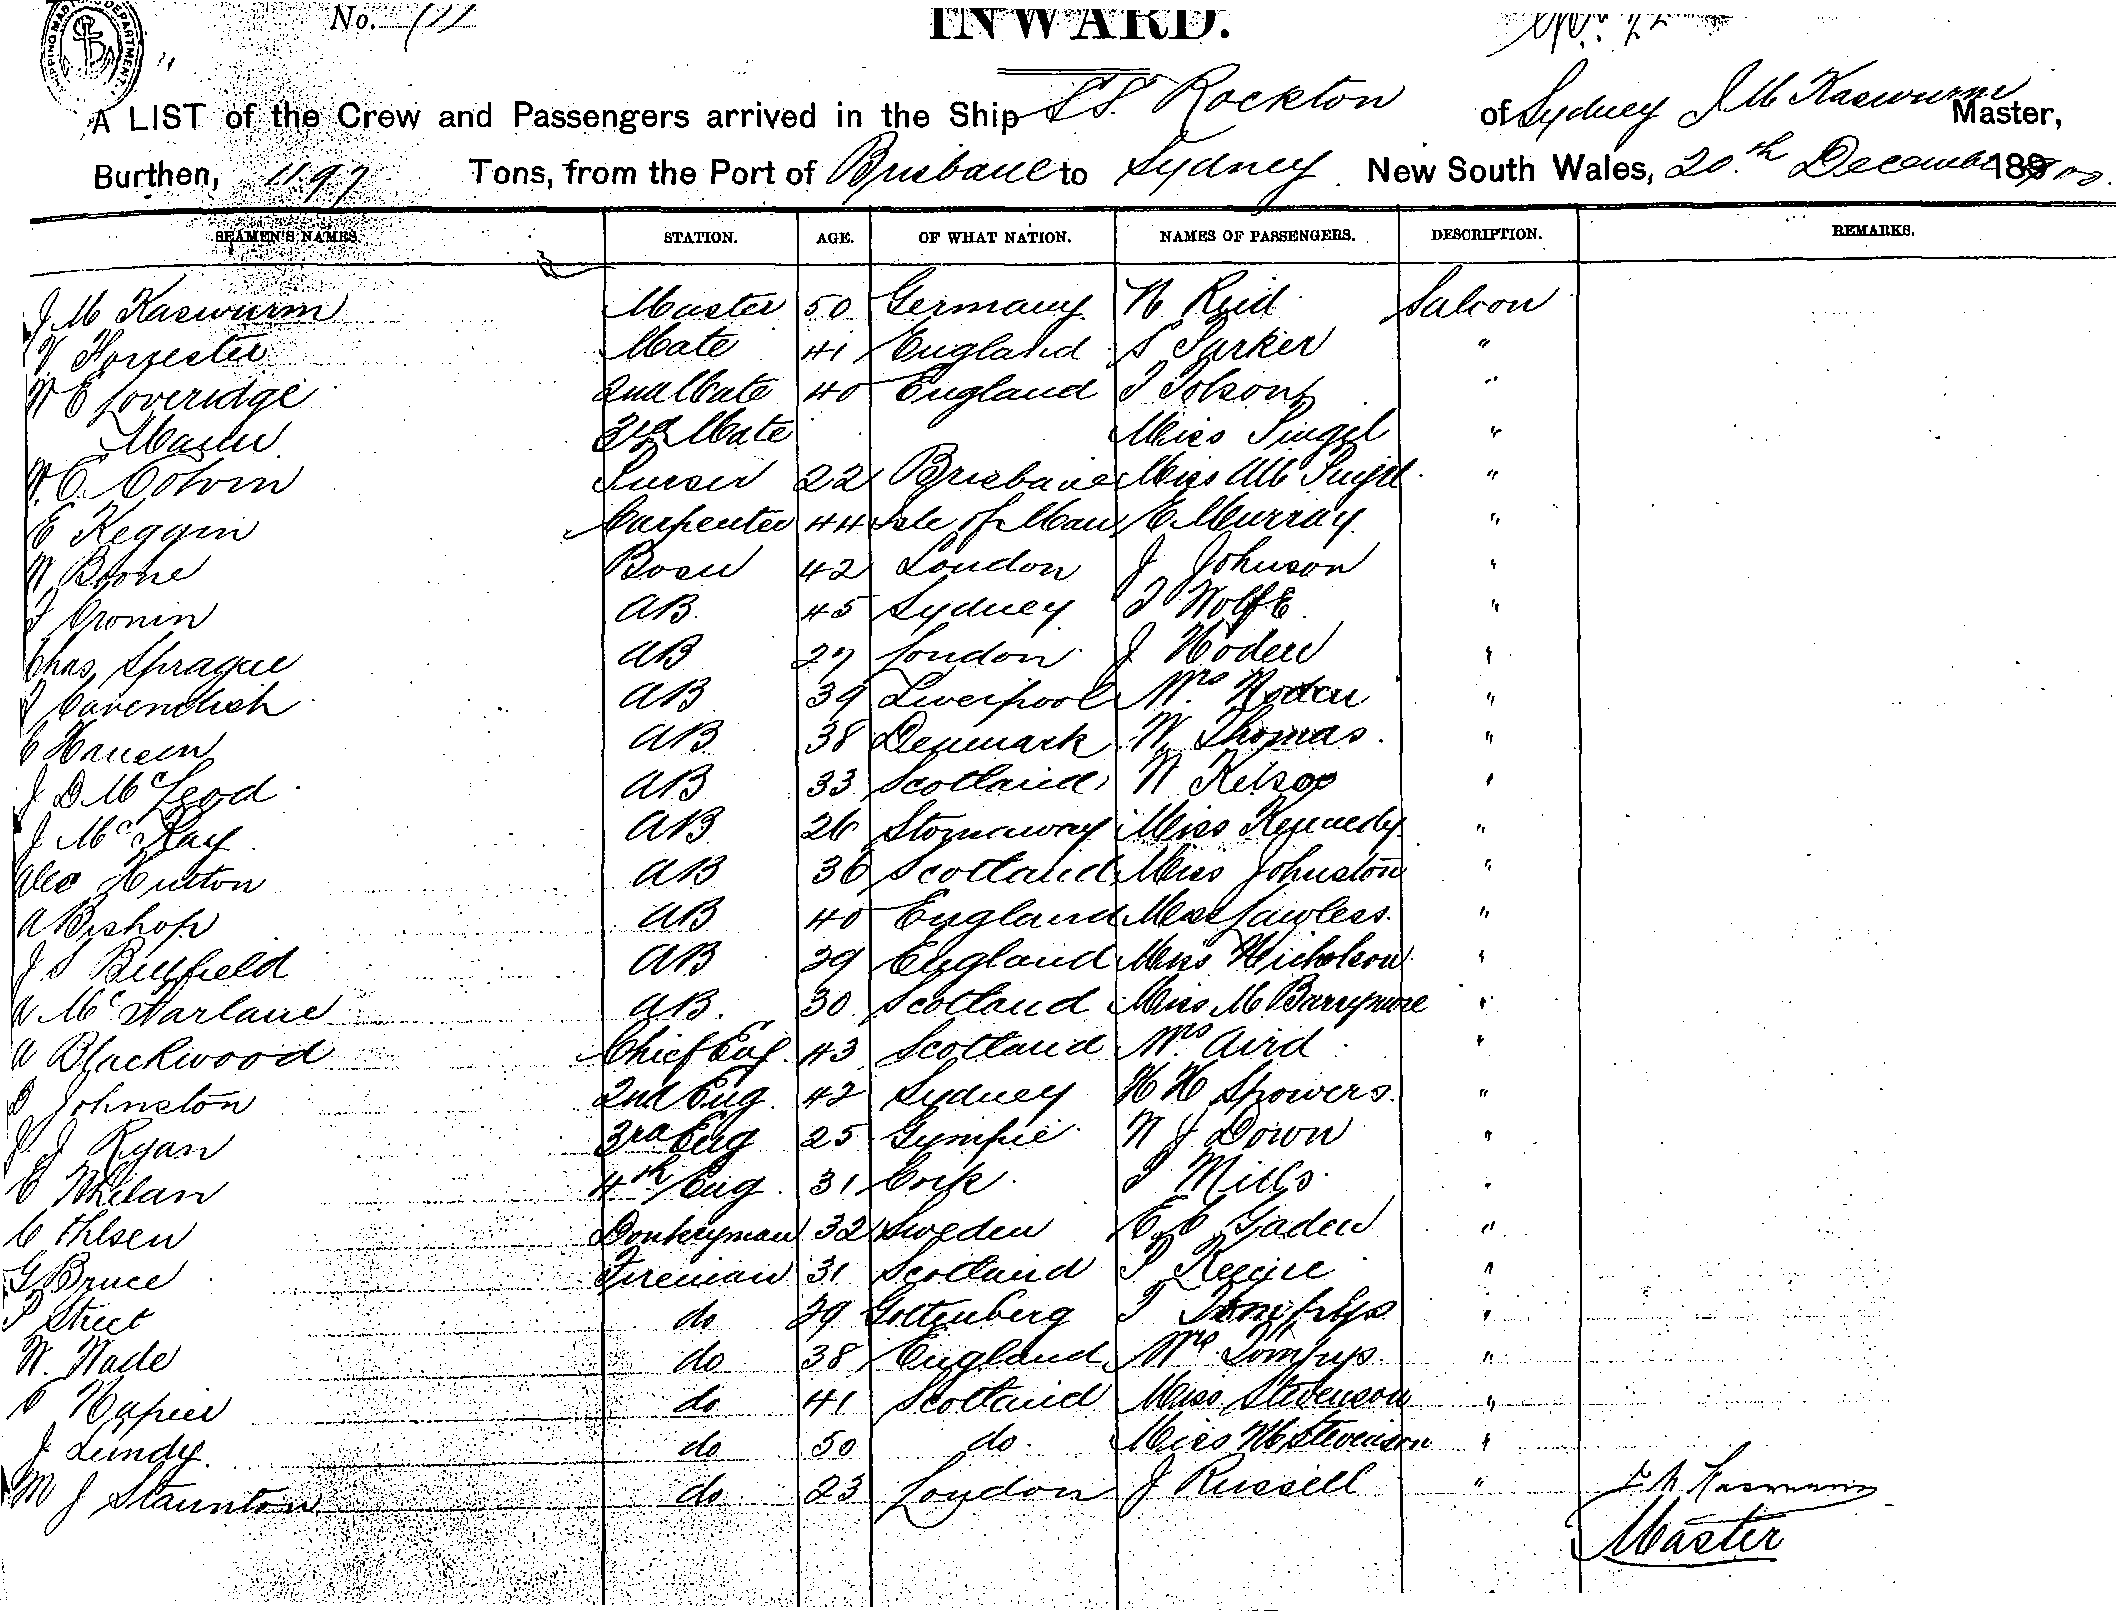 No.
INWARD.
A LIST of the Crew and Passengers arrived in the Ship SS. Rockton of Sydney J M Kaswurm Master,
Burthen, 1197 Tons, from the Port of Brisbane to Sydney New South Wales, 20th December 1900.
SEAMEN'S NAMES. STATION. AGE. OF WHAT NATION. NAMES OF PASSENGERS. DESCRIPTION. REMARKS.
J M Kaswurm Master 50 Germany W Reid Saloon
Forrester Mate 41 England S Parker "
W E Loveridge 2nd Mate 40 England T Tolson "
3rd Mate Miss "
Colvin Purser 22 Brisbane Miss "
E Keggin Carpenter 44 Isle of Man E Murray "
W Boone Bosn 42 London J Johnson "
Cronin AB. 45 Sydney T Wolfe "
Chas Sprague AB 27 London J Hoden "
Cavendish AB 39 Liverpool Mrs Hoden "
C Hansen AB 38 Denmark W Thomas "
J D McLeod AB 33 Scotland W Kelso "
J McKay AB 26 Stornaway Miss Kennedy "
Alex Hutton AB 36 Scotland Miss Johnston "
A Bishop AB 40 England Miss Lawless "
J S AB 29 England Miss Nicholson "
McFarlane AB. 30 Scotland Miss M Barrymore "
A Blackwood Chief Eng. 43 Scotland Mrs Aird "
D Johnston 2nd Eng. 42 Sydney H H Showers "
J Ryan 3rd Eng 25 Gympie W J Down "
C Whelan 4th Eng. 31 Cork T Mills "
C Donkeyman 32 Sweden E C Gaden "
G Bruce Fireman 31 Scotland "
Street do 29 Gottenberg T "
W. Wade do 38 England Mrs "
Napier do 41 Scotland Miss Stevenson "
J Lundy. do 50 do Miss Stevenson "
M J Staunton do 23 London J Russell "
Master